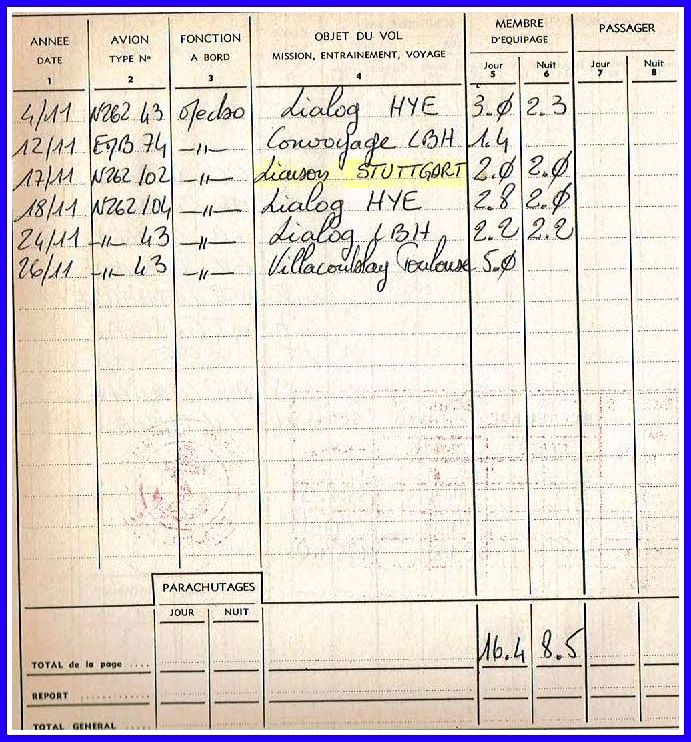 ANNEE AVION FONCTION OBJET DU VOL MEMBRE D'EQUIPAGE PASSAGER
DATE TYPE N° A BORD MISSION, ENTRAINEMENT, VOYAGE Jour Nuit Jour Nuit
1 2 3 4 5 6 7 8
4/11 N262 43 Liaison HYE 3.0 2.3
12/11 74 -"- Convoyage LBH 1.4
17/11 N262/02 -"- Liaison STUTTGART 2.0 2.0
18/11 N262/04 -"- HYE 2.8 2.0
24/11 -"- 43 -"- LBH 2.2 2.2
26/11 -"- 43 -"- Villacoublay Toulouse 5.0
PARACHUTAGES
JOUR NUIT
TOTAL de la page .... 16.4 8.5
REPORT
TOTAL GENERAL